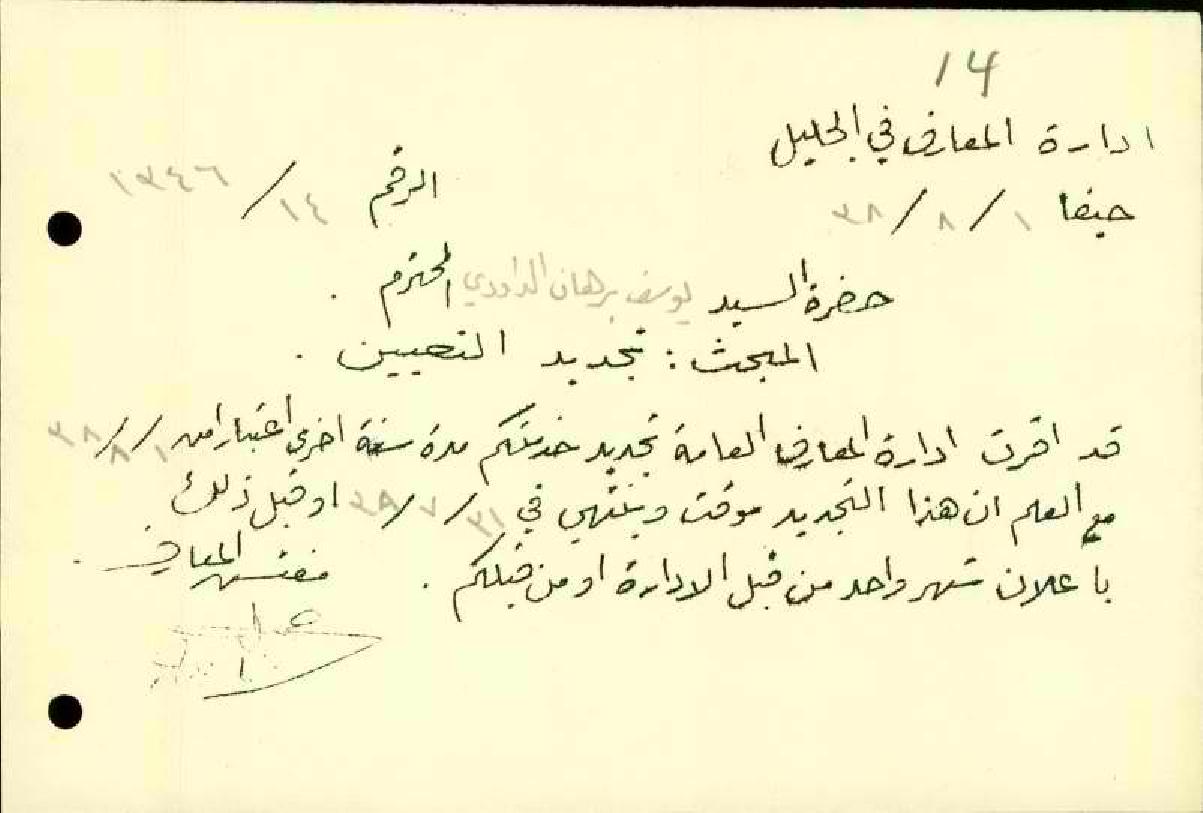 14
ادارة المعارف في الجليل
حيفا ١/٨/٣٨ الرقم ١٤/١٣٤٦
حضرة السيد يوسف برهان الداودي المحترم .
المبحث : تجديد التعيين .
قد اقرت ادارة المعارف العامة تجديد خدمتكم مدة سنة اخرى اعتبارا من ١/٨/٣٨
مع العلم ان هذا التجديد موقت وينتهي في ٣١/٧/٣٩ او قبل ذلك
باعلان شهر واحد من قبل الادارة او من قبلكم .
مفتش المعارف .